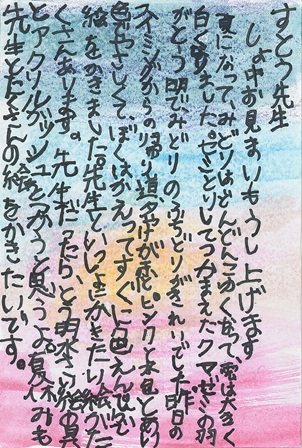 すとう先生
しょ中お見まいもうし上げます
夏になって、みどりはどんどんこゆくなって、雲は大きく
白くなりました。セミとりしてつかまえたクマゼミの羽
がとう明でみどりのふちどりがきれいでした。昨日の
スイミングからの帰り道、夕やけがだいピンクと水色とあい
色でやさしくて、ぼくはかえってすぐに色えんぴつで
絵をかきました。先生といっしょにかきたい絵がた
くさんあります。先生だったら、とう明水さい絵の具
とアクリルガッシュをつかうと思うよ。夏休みも
先生とたくさんの絵をかきたいです。